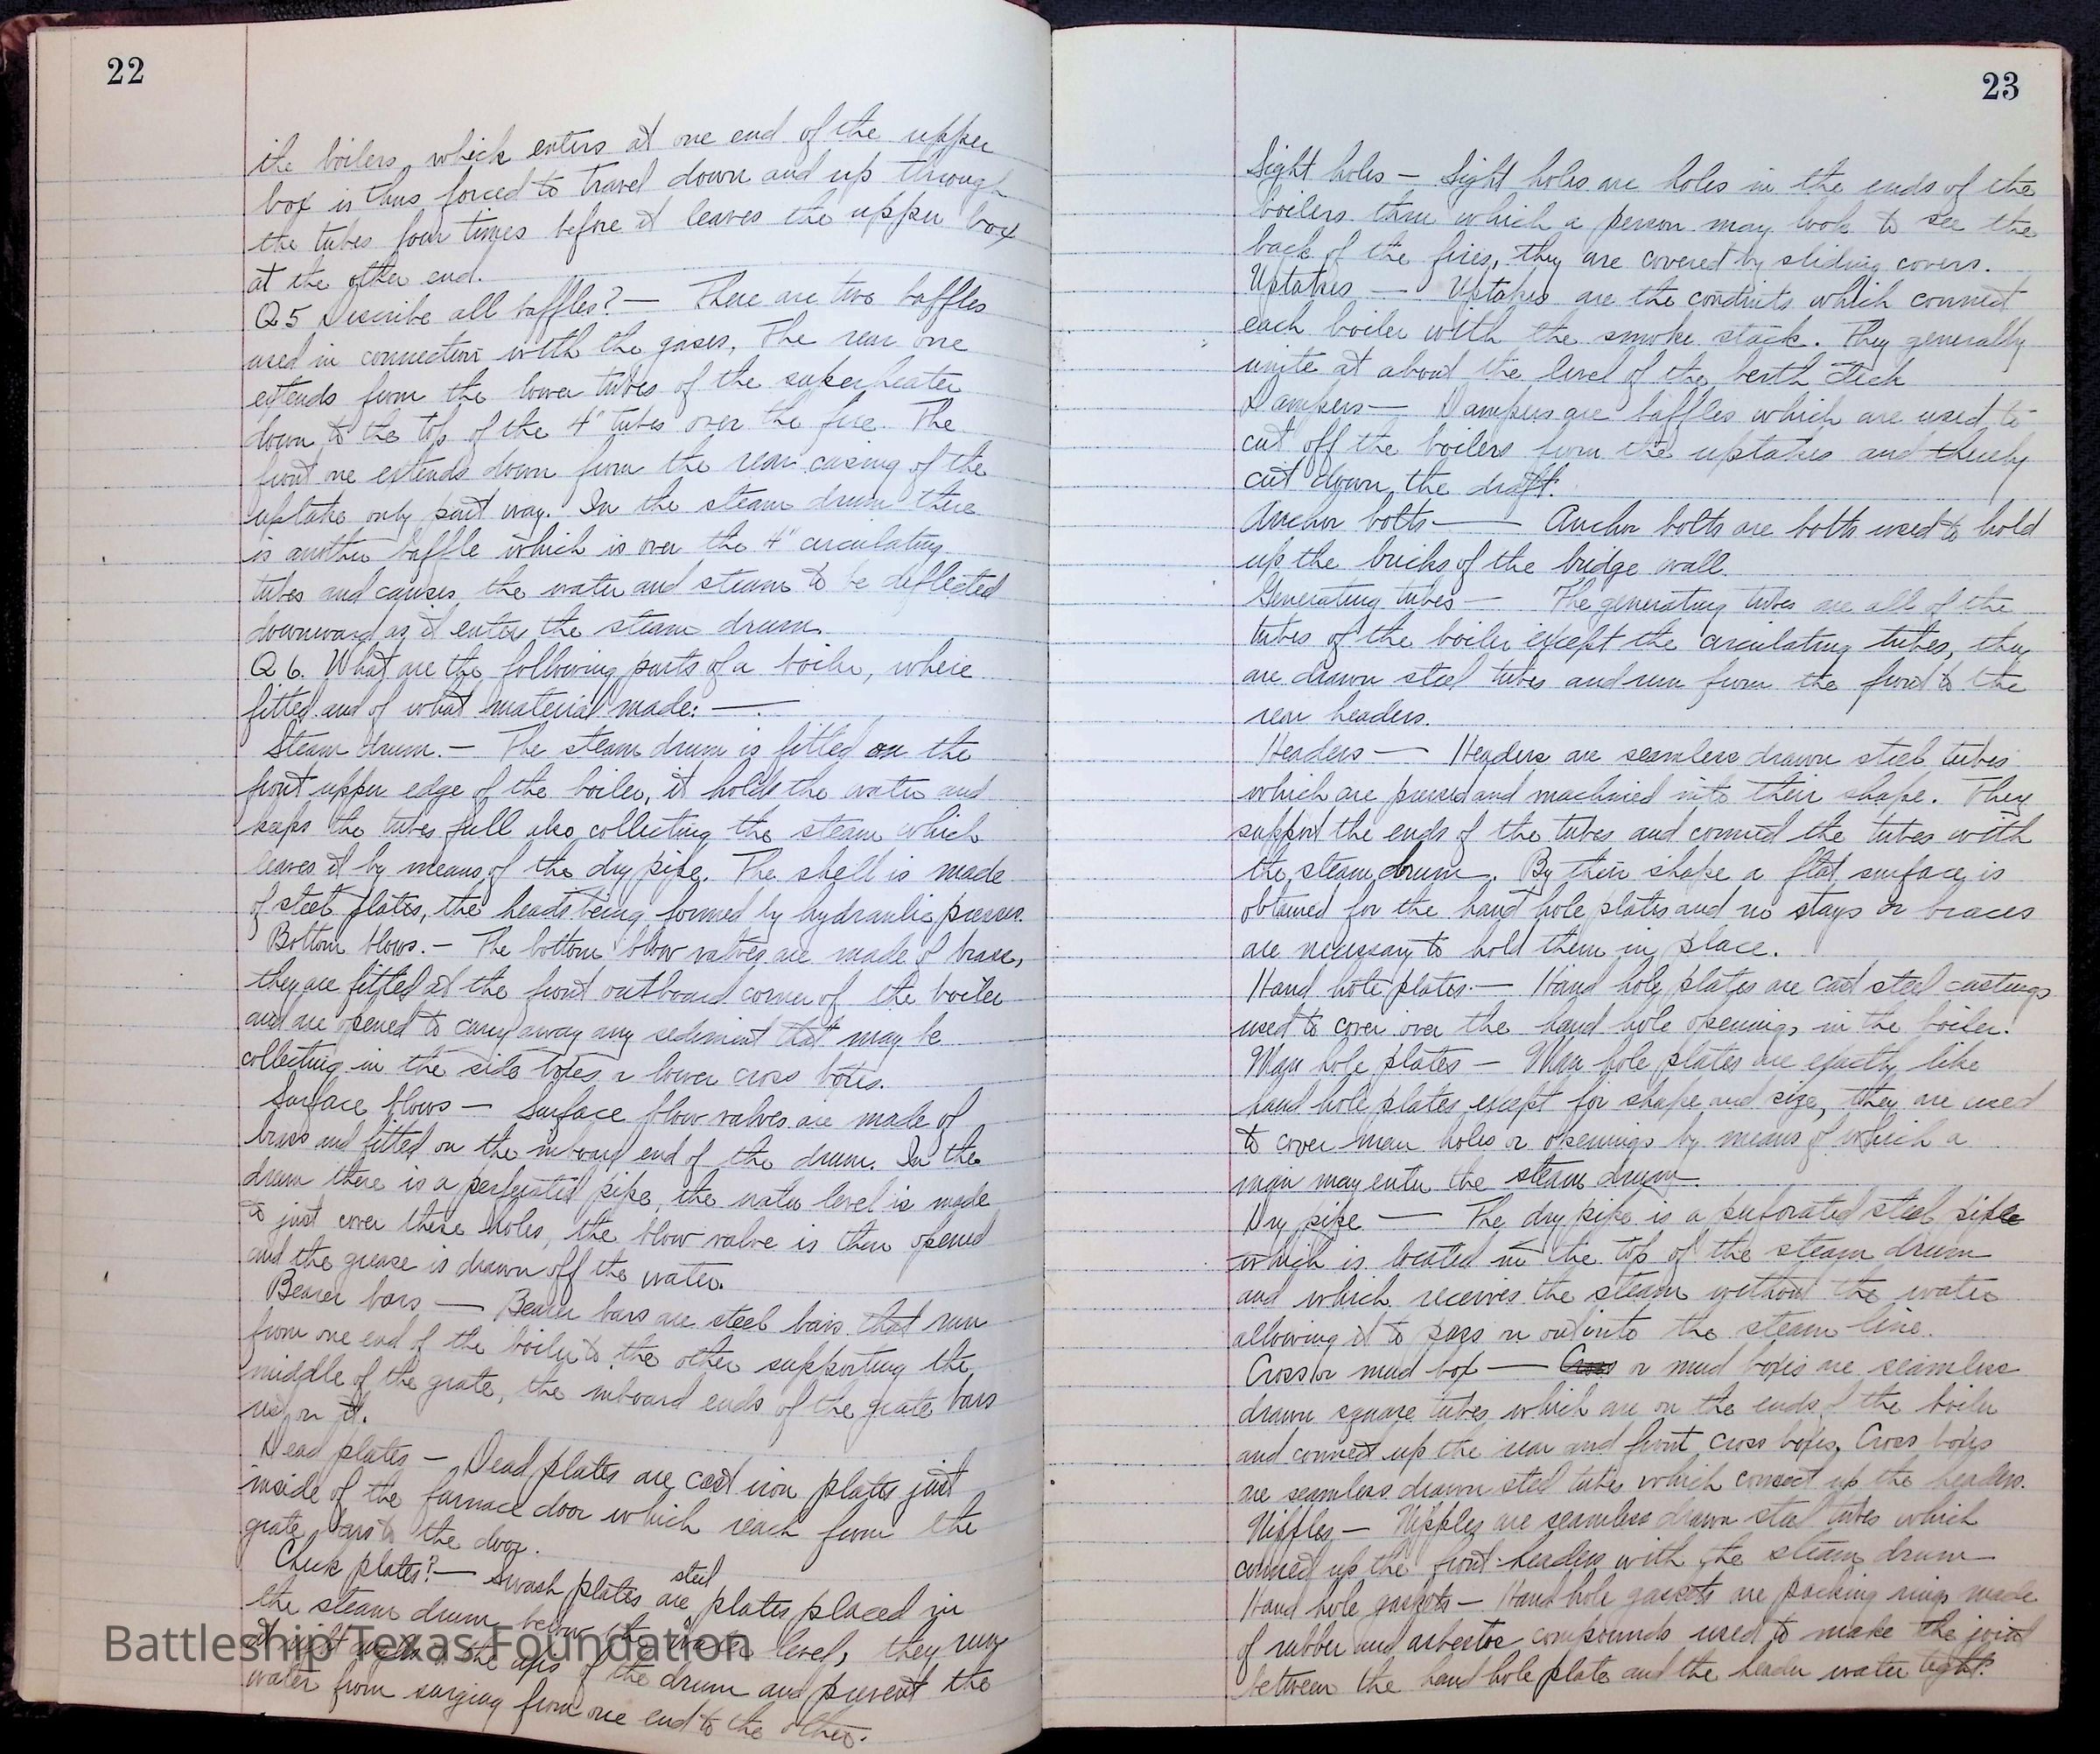 22
the boilers, which enters at one end of the upper
box is thus forced to travel down and up through
the tubes four times before it leaves the upper box
at the other end.
Q5 Describe all baffles? — There are two baffles
used in connection with the gases, The rear one
extends from the lower tubes of the superheater
down to the top of the 4" tubes over the fire. The
front one extends down from the rear casing of the
uptake only part way. In the steam drum there
is another baffle which is over the 4" circulating
tubes and causes the water and steam to be deflected
downward as it enters the steam drum.
Q 6. What are the following parts of a boiler, where
fitted and of what material made: —.
Steam drum. — The steam drum is fitted on the
front upper edge of the boiler, it holds the water and
keeps the tubes full also collecting the steam which
leaves it by means of the dry pipe. The shell is made
of steel plates, the heads being formed by hydraulic presses.
Bottom blows. — The bottom blow valves are made of brass,
they are fitted at the front outboard corner of the boiler
and are opened to carry away any sediment that may be
collecting in the side boxes or lower cross boxes.
Surface blows — Surface blow valves are made of
brass and fitted on the inboard end of the drum. In the
drum there is a perforated pipe, the water level is made
to just cover these holes, the blow valve is then opened
and the grease is drawn off the water.
Bearer bars — Bearer bars are steel bars that run
from one end of the boiler to the other supporting the
middle of the grate, the inboard ends of the grate bars
rest on it.
Dead plates — Dead plates are cast iron plates just
inside of the furnace door which reach from the
grate bars to the door.
Check plates? — Swash plates are steel plates placed in
the steam drum below the water level, they run
at right angles to the of the drum and prevent the
water from surging from one end to the other.
Battleship Texas Foundation
23
Sight holes — Sight holes are holes in the ends of the
boilers thru which a person may look to see the
back of the fires, they are covered by sliding covers.
Uptakes — Uptakes are the conduits which connect
each boiler with the smoke stack. They generally
unite at about the level of the berth deck
Dampers — Dampers are baffles which are used to
cut off the boilers from the uptakes and thereby
cut down the draft.
Anchor bolts — Anchor bolts are bolts used to hold
up the bricks of the bridge wall.
Generating tubes — The generating tubes are all of the
tubes of the boiler except the circulating tubes, they
are drawn steel tubes and run from the front to the
rear headers.
Headers — Headers are seamless drawn steel tubes
which are pressed and machined into their shape. They
support the ends of the tubes and connect the tubes with
the steam drum. By their shape a flat surface is
obtained for the hand hole plates and no stays or braces
are necessary to hold them in place.
Hand hole plates. — Hand hole plates are cast steel castings
used to cover over the hand hole openings in the boiler.
Man hole plates — Man hole plates are exactly like
hand hole plates except for shape and size, they are used
to cover man holes or openings by means of which a
man may enter the steam drum.
Dry pipe — The dry pipe is a perforated steel pipe
which is located in the top of the steam drum
and which receives the steam without the water
allowing it to pass on out into the steam line.
Cross or mud box — Cross or mud boxes are seamless
drawn square tubes which are on the ends of the boiler
and connect up the rear and front cross boxes, Cross boxes
are seamless drawn steel tubes which connect up the headers.
Nipples — Nipples are seamless drawn steel tubes which
connect up the front headers with the steam drum
Hand hole gaskets — Hand hole gaskets are packing rings made
of rubber and asbestos compounds used to make the joint
between the hand hole plate and the header water tight.